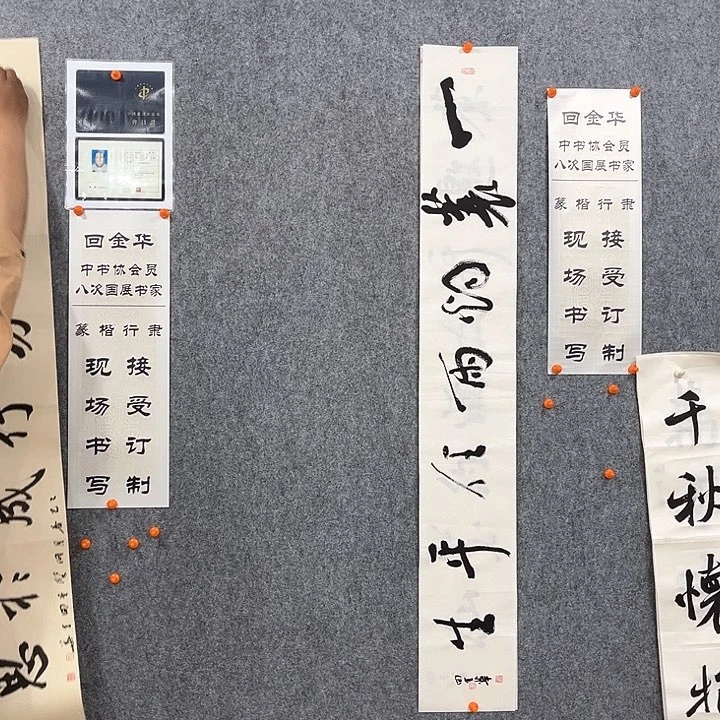 行成於思
回金华
中书协会员
八次国展书家
篆楷行隶
现场书写
接受订制
一蓑烟雨任平生
回金华
中书协会员
八次国展书家
篆楷行隶
现场书写
接受订制
千秋懷抱